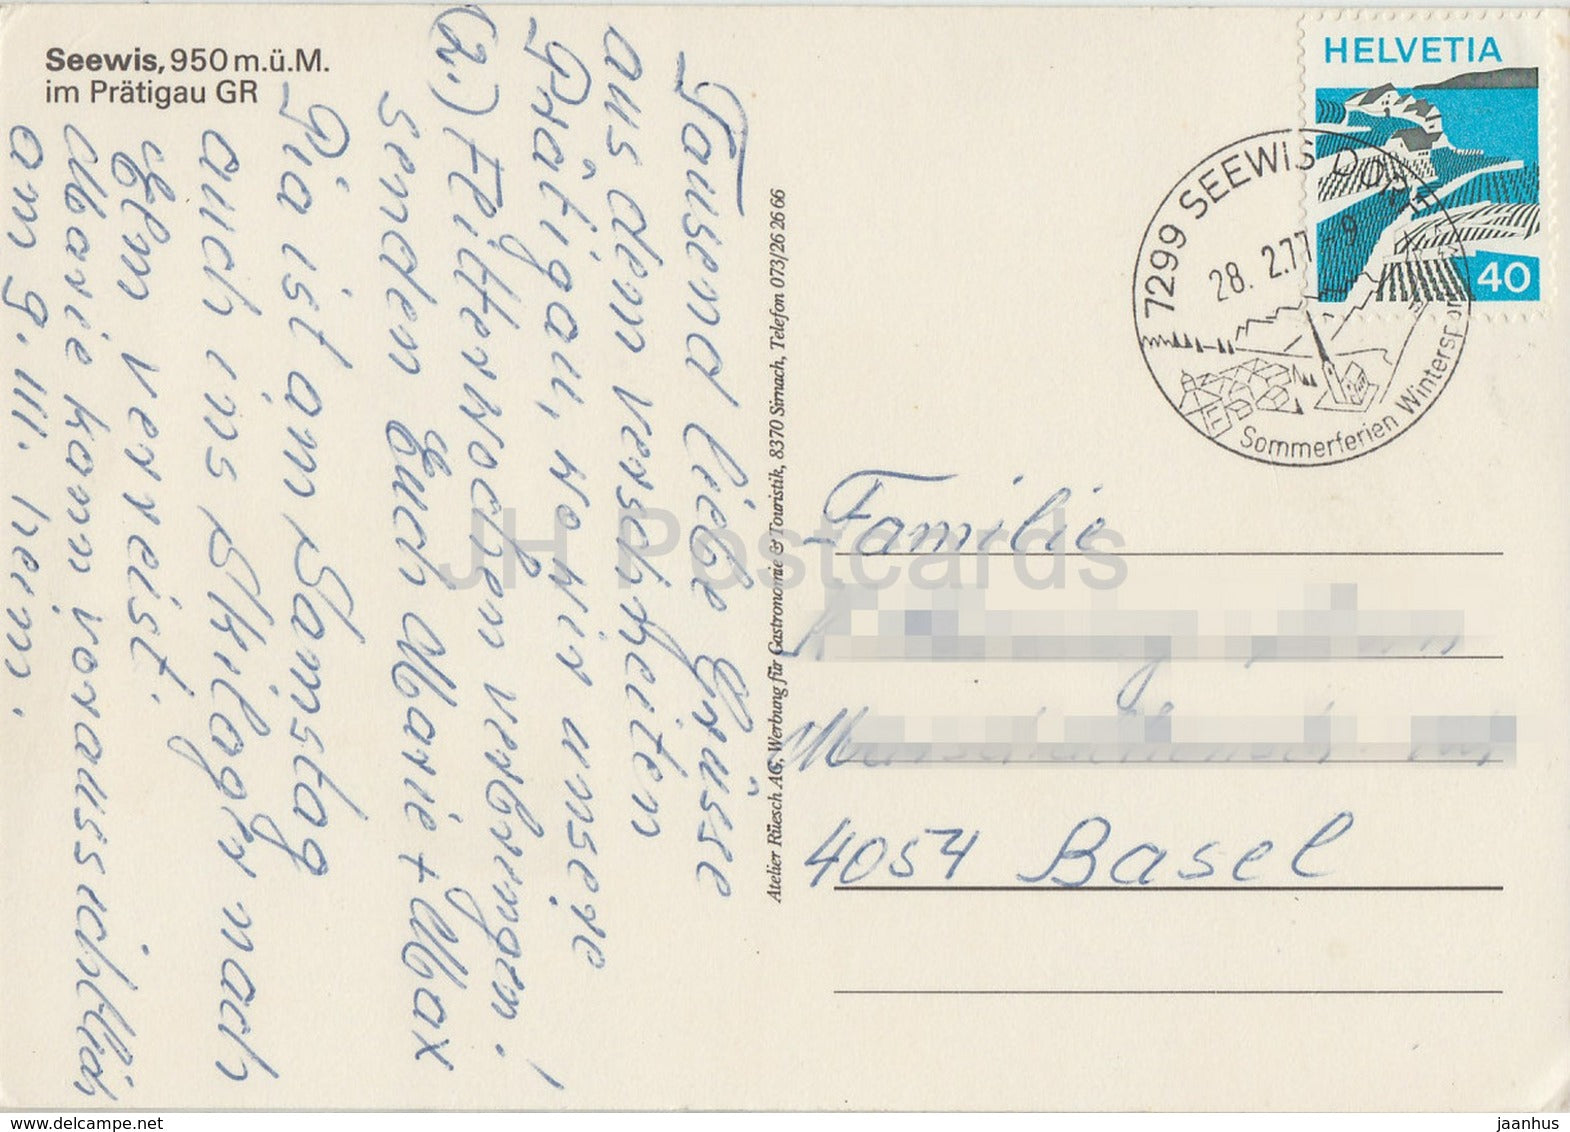 Seewis, 950 m.ü.M.
im Prätigau GR
Tausend liebe Grüsse
aus dem verschneiten
Prätigau, wo wir unsere
(2.) Flitterwochen verbringen!
senden Euch Marie + Max
Pia ist am Samstag
auch ins Skilager nach
Elm verreist.
Marie kann voraussichtlich
am 9.III. heim.
Atelier Rüesch AG, Werbung für Gastronomie & Touristik, 8370 Sirnach, Telefon 073/26 26 66
HELVETIA
40
7299 SEEWIS DORF
28. 2.77-9
Sommerferien Wintersport
Familie
4054 Basel
JH Postcards
delcampe.net
jaanhus